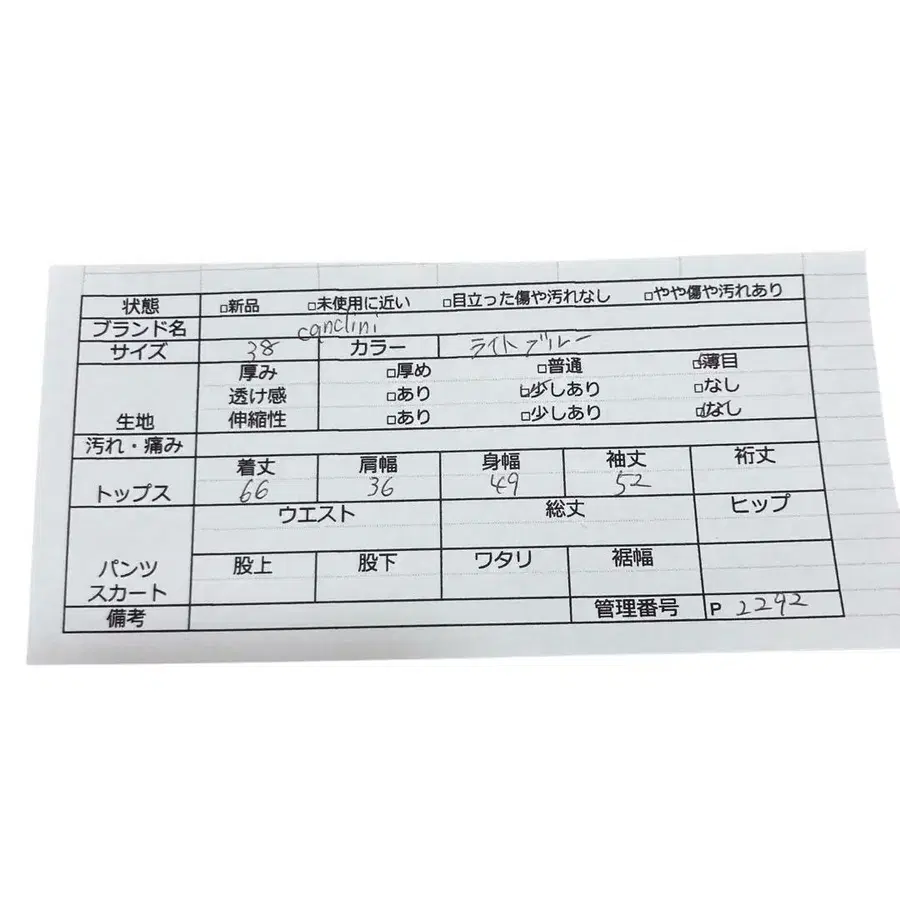 状態 □新品 □未使用に近い □目立った傷や汚れなし □やや傷や汚れあり
ブランド名 canclini
サイズ 38 カラー ライトブルー
厚み □厚め □普通 ☑薄目
透け感 □あり ☑少しあり □なし
生地 伸縮性 □あり □少しあり ☑なし
汚れ・痛み
着丈 肩幅 身幅 袖丈 裄丈
トップス 66 36 49 52
ウエスト 総丈 ヒップ
股上 股下 ワタリ 裾幅
パンツ
スカート
備考 管理番号 P 2292